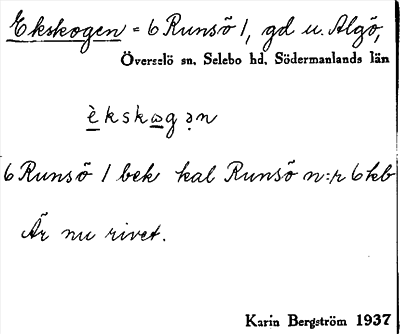 Ekskogen = 6 Runsö 1, gd u. Algö,
Överselö sn, Selebo hd, Södermanlands län
èkskωgən
6 Runsö 1 bek kal Runsö n:r 6 kb
Är nu rivet.
Karin Bergström 1937